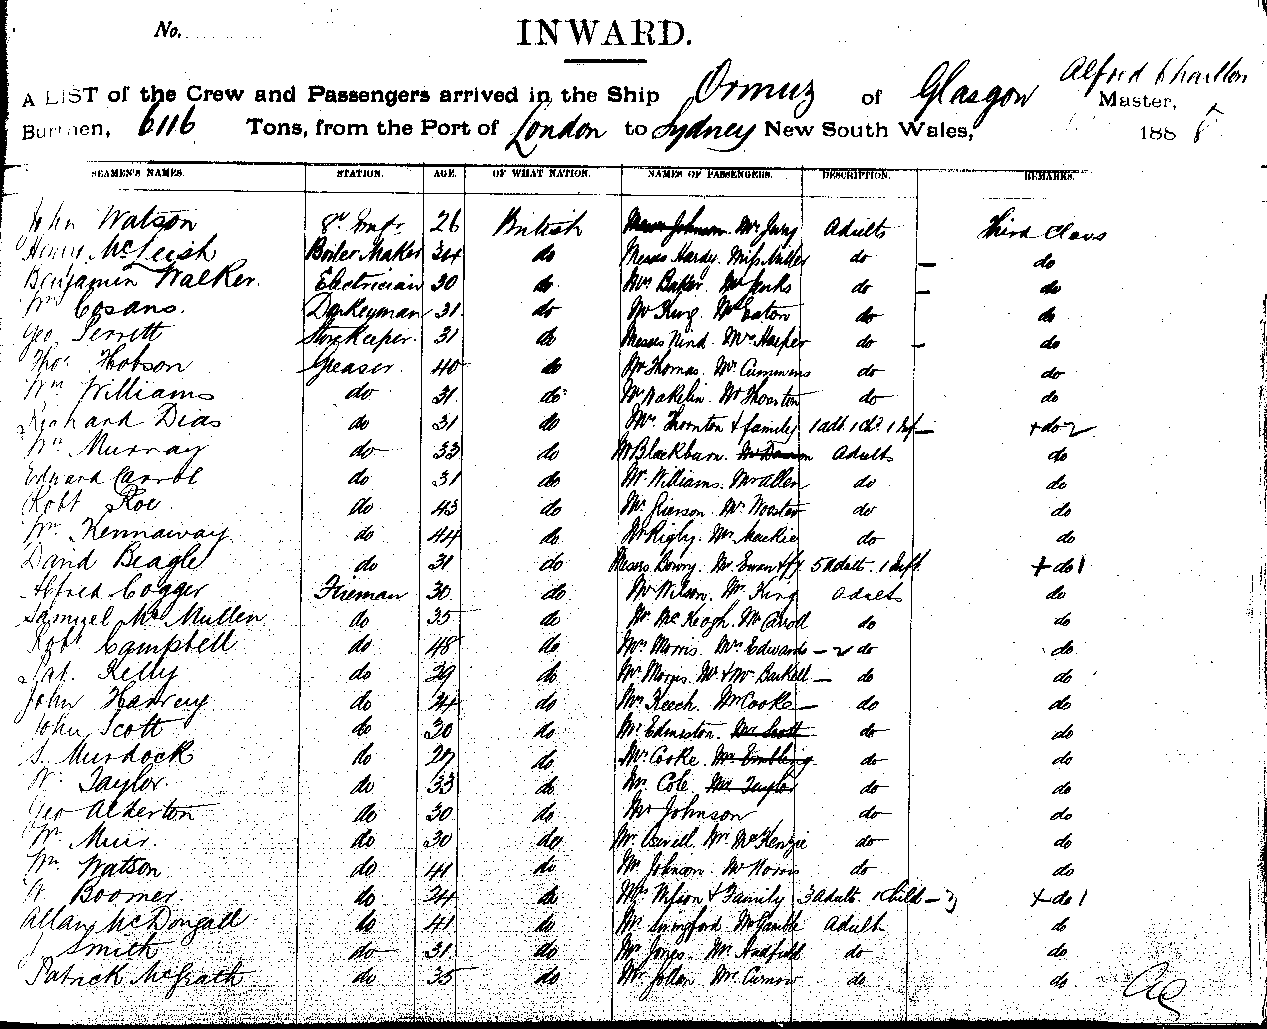 No.
INWARD.
A LIST of the Crew and Passengers arrived in the Ship Ormuz of Glasgow Alfred Charlton Master,
Burthen, 6116 Tons, from the Port of London to Sydney New South Wales, 1888
SEAMEN'S NAMES. STATION. AGE. OF WHAT NATION. NAMES OF PASSENGERS. DESCRIPTION. REMARKS.
John Watson 26 British Mr Adults Third Class
Henry McLeish Boiler Maker 34 do Messrs Hardy. Miss Miller do — do
Benjamin Walker. Electrician 30 do Mrs Baker. Mr Jenks do — do
Wm Cosans. Donkeyman 31 do Mr King. Mr Eaton do do
Geo Perrett Storekeeper. 31 do Messrs Mr Harper do — do
Thos Hobson Greaser. 40 do Mr Thomas. Mr Cummins do do
Wm Williams do 31 do Mr Wakelin. Mr do do
Richard Dias do 31 do Mrs Thornton & family 1 adt. 1 ch. 1 Inf — + do 2
Wm Murray do 33 do Mr Blackburn. Adults do
Edward Carrol do 31 do Mr Williams. Mr Allen do do
Robt Roe do 43 do Mr Grierson. Mr do do
Wm Kennaway do 44 do Mr Rigby. Mr Mackie do do
David Beagle do 31 do Messrs Mr Ewan & fy 5 adults. 1 Inft. + do 1
Alfred Cogger Fireman 30 do Mr Wilson. Mr King Adults do
Samuel McMullen do 35 do Mr McKeogh. Mr Carroll do do
Robt Campbell do 48 do Mrs Morris. Mrs Edwards — do do
Pat. Kelly do 39 do Mr Mr & Mrs — do do
John Harvey do 34 do Mrs Keech. Mr Cooke — do do
John Scott do 30 do Mr Edmiston. Mr Scott do do
S. Murdock do 29 do Mr Cooke. Mr Embling do do
W. Taylor. do 33 do Mr Cole. Taylor do do
Geo Alderton do 30 do Mr Johnson do do
W. Muir. do 30 do Mr Mr McKenzie do do
Wm Watson. do 41 do Mr Johnson. Mr Morris do do
Boomer do 24 do Mrs & Family 3 adults. 1 Child — + do 1
Allan McDougall do 41 do Mr Mr Gamble Adults do
J Smith do 31 do Mr Jones. Mr Hadfield do do
Patrick McGrath do 35 do Mr Mr Curnow do do